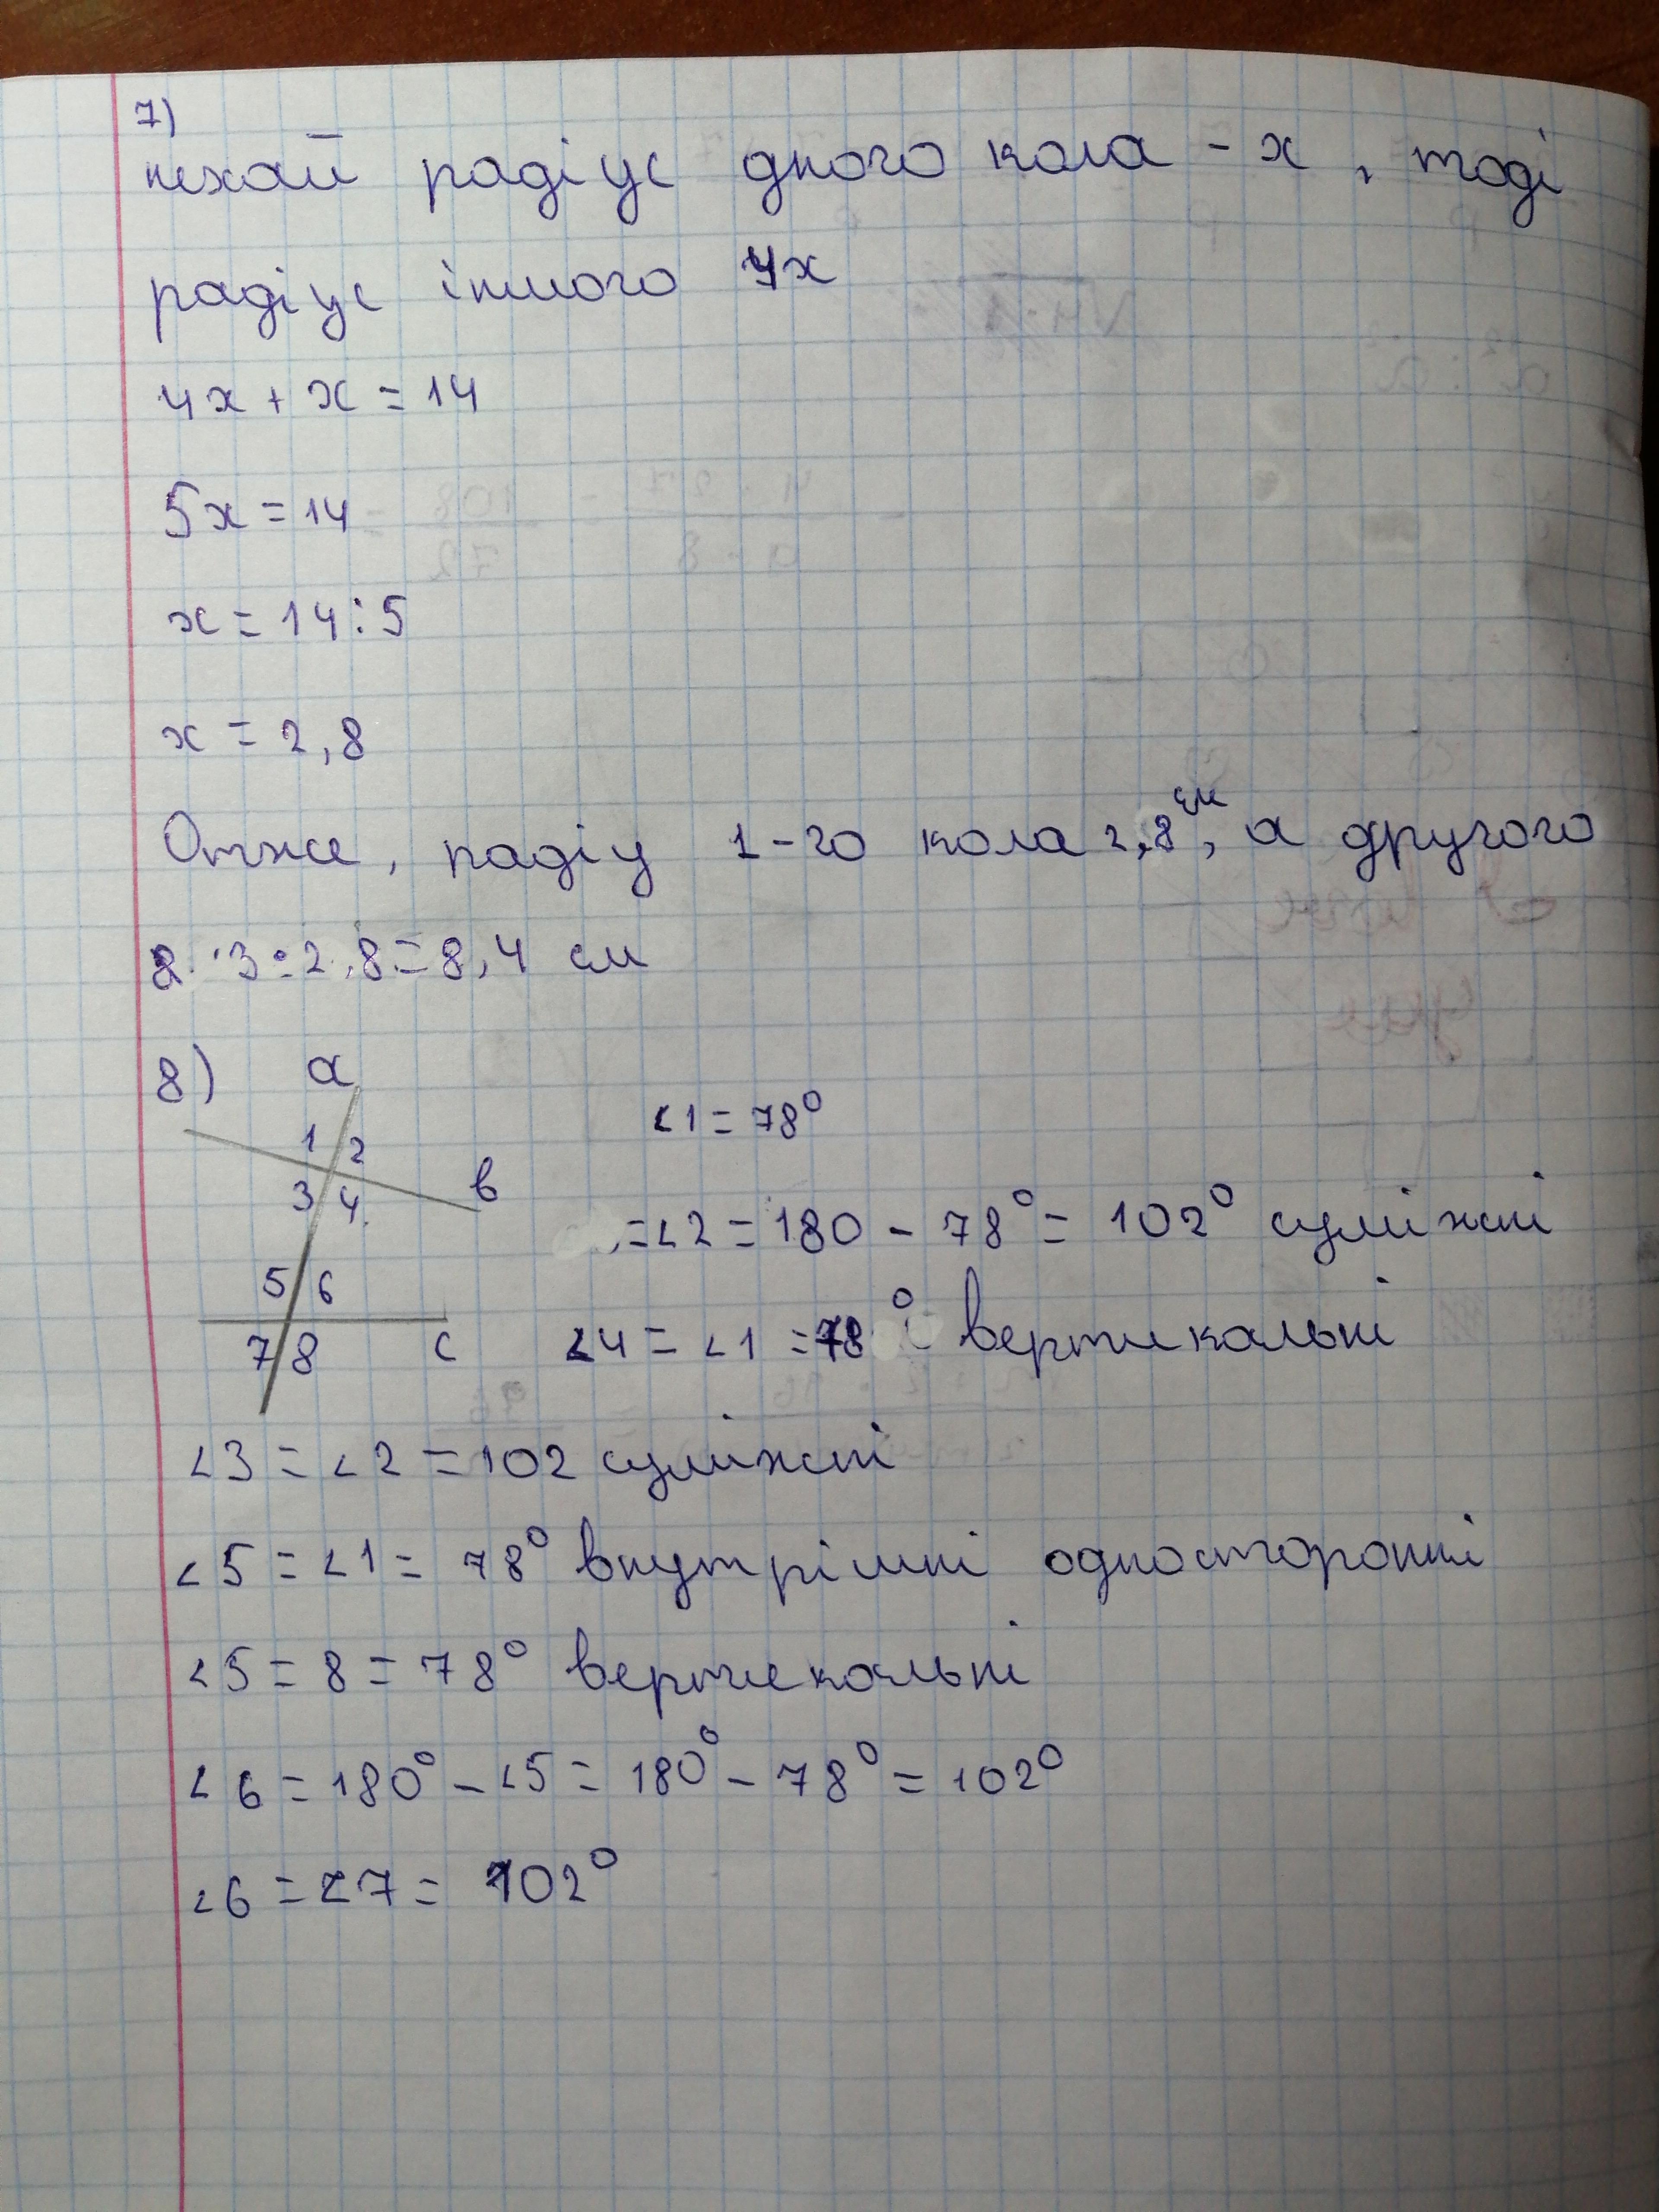 7)
нехай радіус дного кола - х, тоді
радіус іншого 4х
4х + х = 14
5х = 14
х = 14 : 5
х = 2,8
Отже, радіу 1-го кола 2,8 см, а другого
3 · 2,8 = 8,4 см
8) a
1 2
3 4
b
5 6
7 8
c
<1 = 78°
=<2 = 180 - 78° = 102° суміжні
<4 = <1 = 78° вертикальні
<3 = <2 = 102 суміжні
<5 = <1 = 78° внутрішні односторонні
<5 = 8 = 78° вертикальні
<6 = 180° - <5 = 180° - 78° = 102°
<6 = <7 = 102°